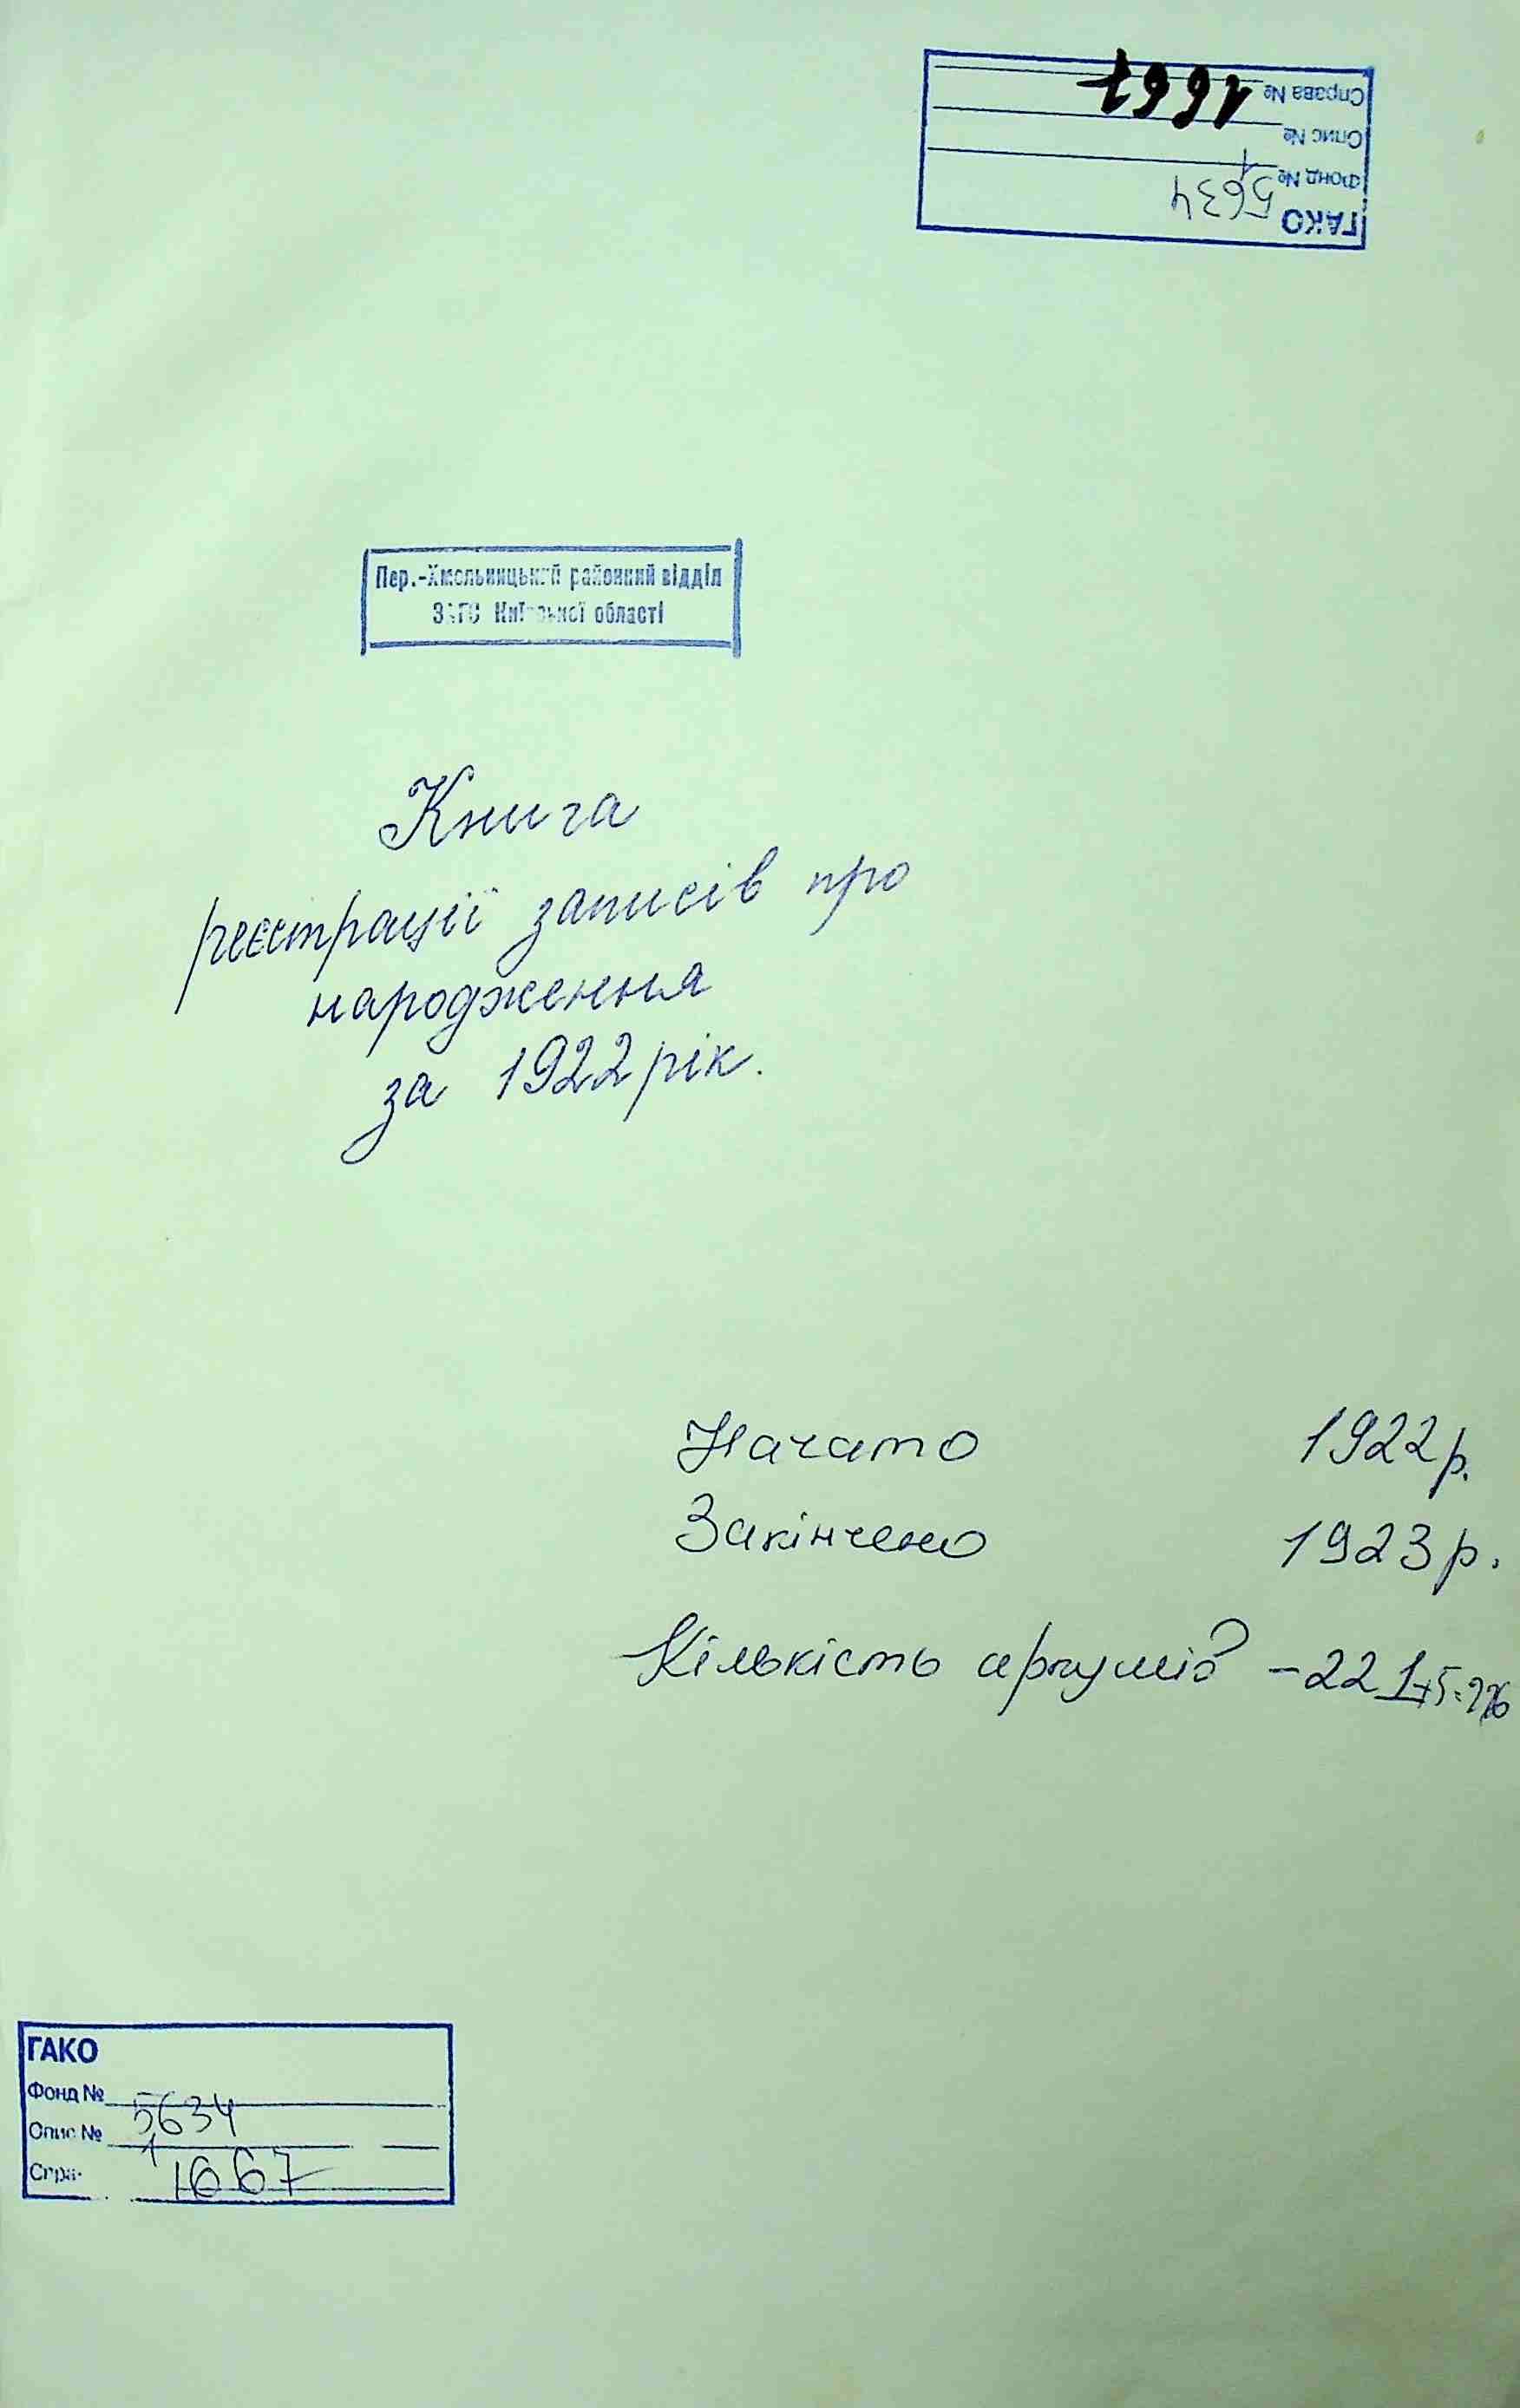 ГАКО
Фонд № 5634
Опис № 1
Справа № 1667
Пер.-Хмельницький районний відділ
ЗАГС Київської області
Книга
реєстрації записів про
народження
за 1922 рік.
Начато 1922 р.
Закінчено 1923 р.
Кількість аркушів - 221+5=226
ГАКО
Фонд № 5634
Опис № 1
Спра 1667